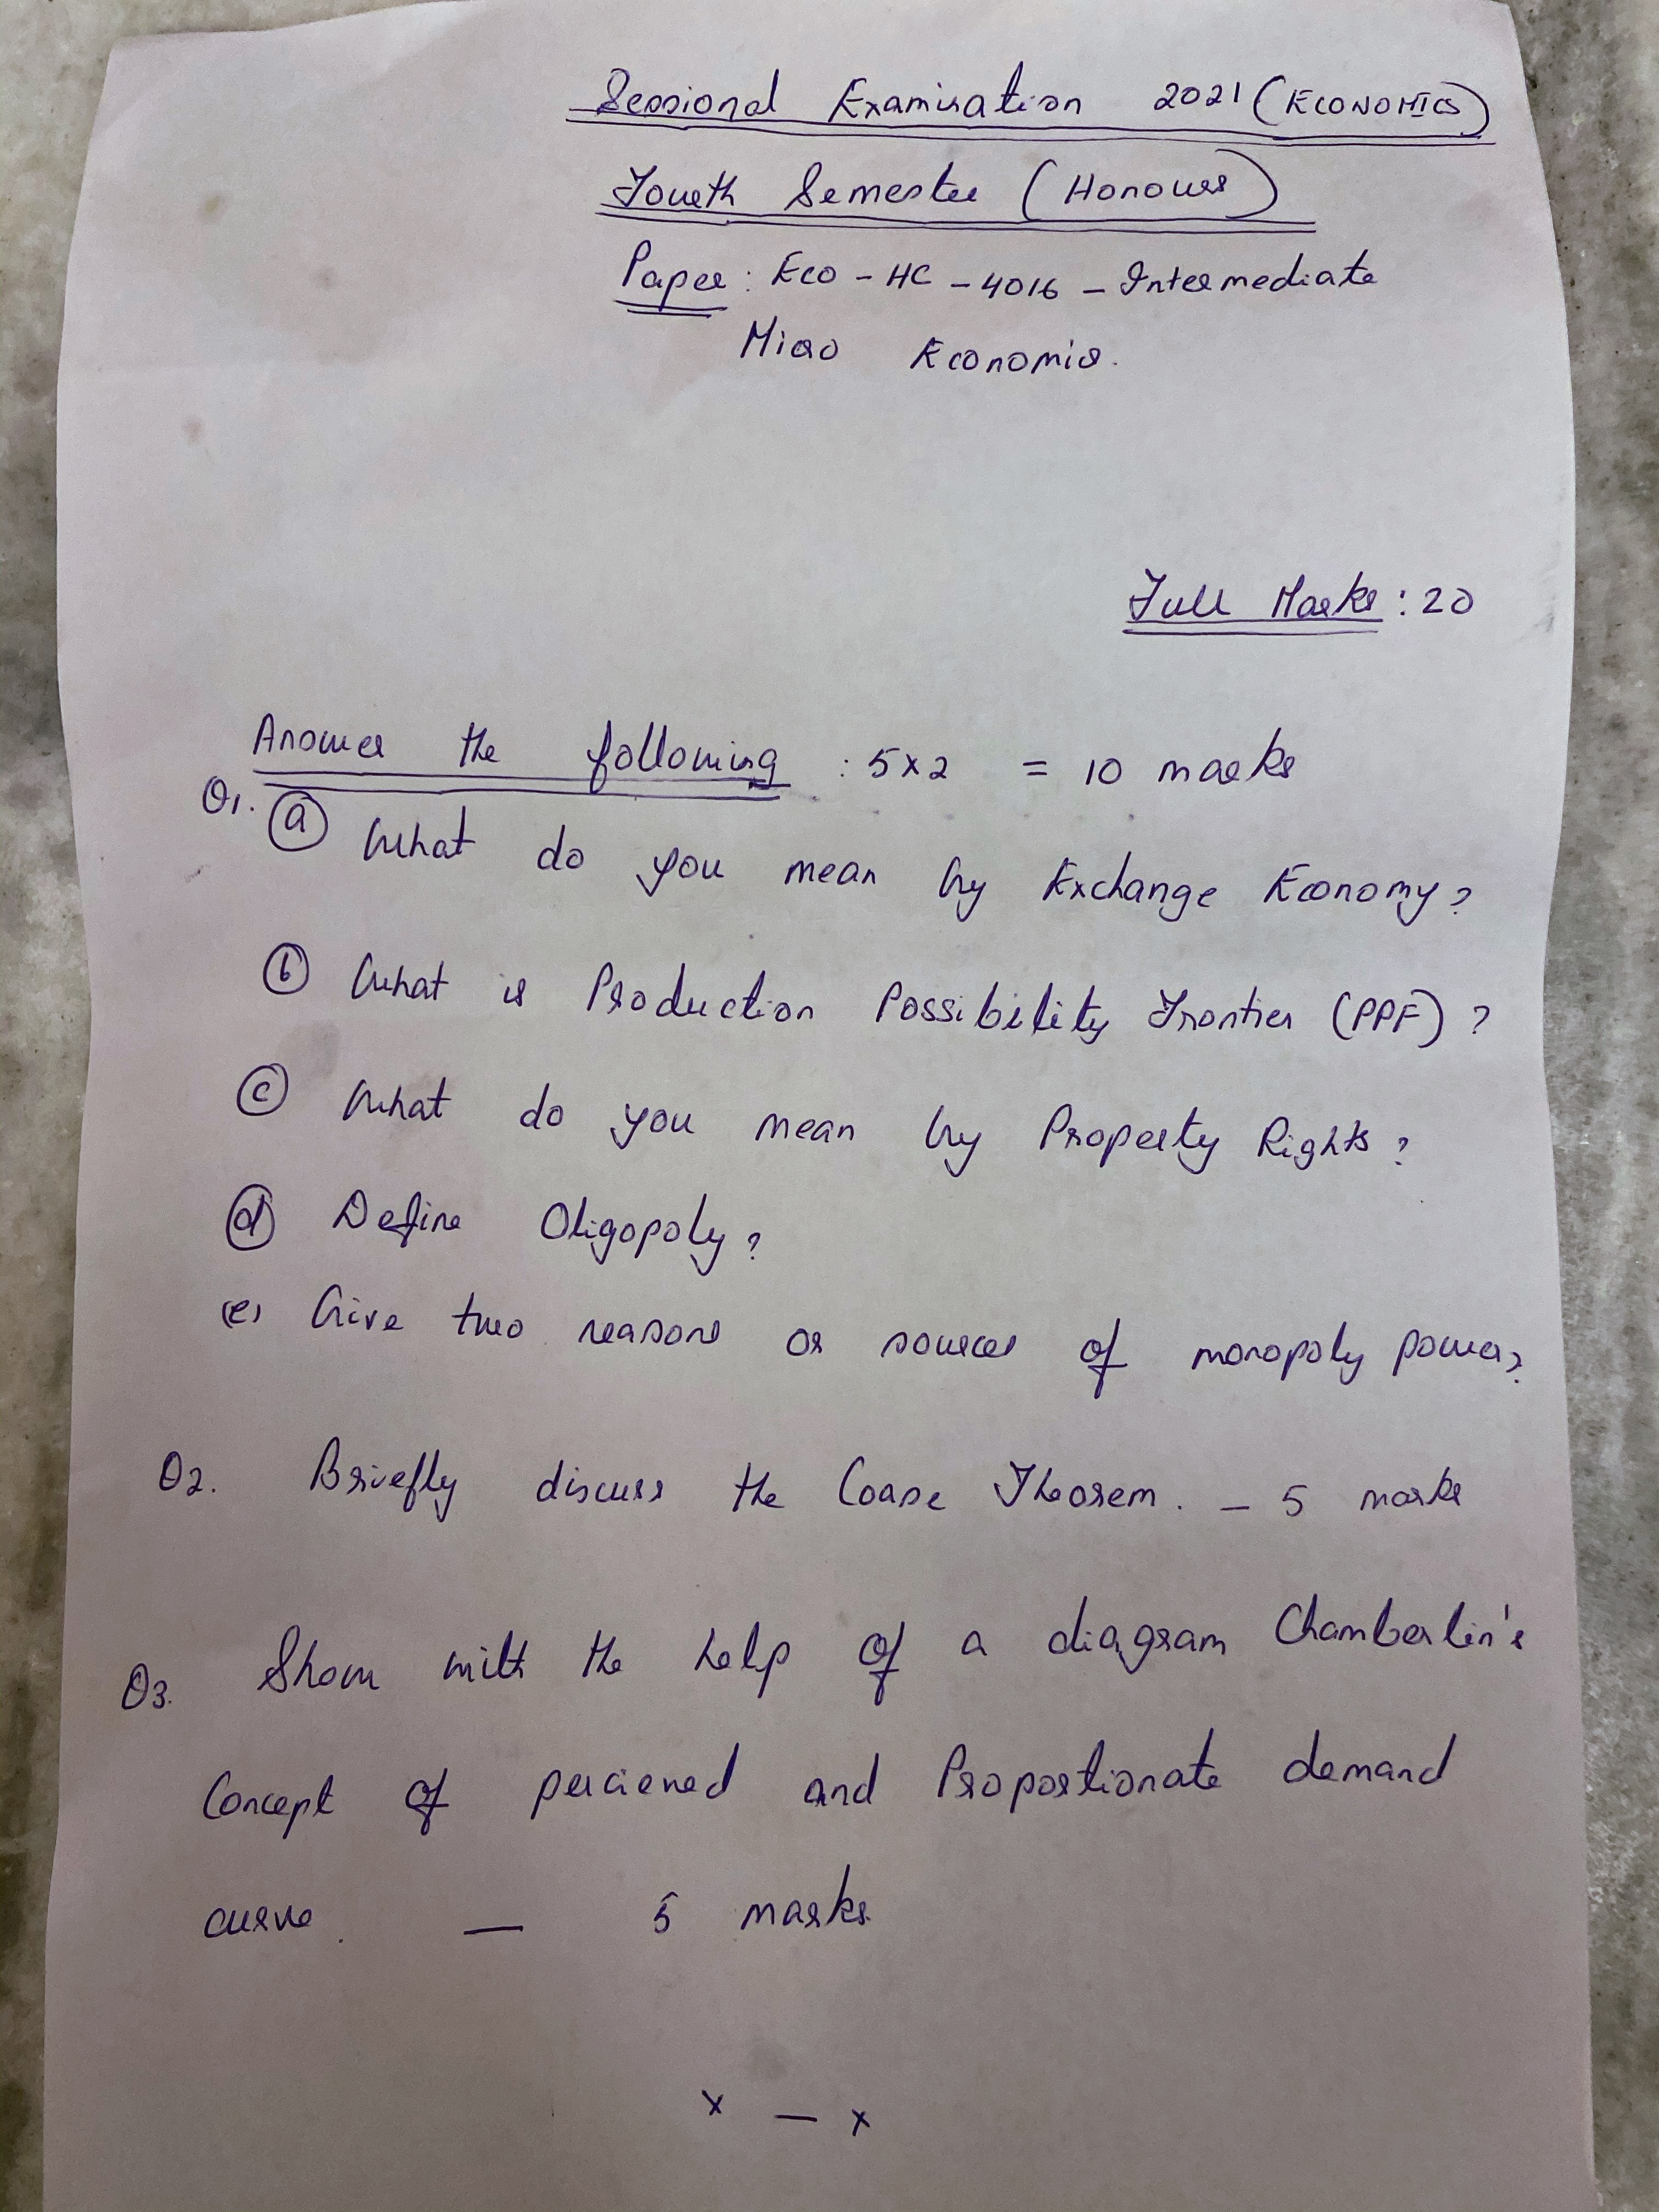 Sessional Examination 2021 (ECONOMICS)
Fourth Semester (Honours)
Paper: Eco - HC - 4016 - Intermediate
Micro Economics.
Full Marks: 20
Answer the following : 5x2 = 10 marks
Q1. (a) What do you mean by Exchange Economy?
(b) What is Production Possibility Frontier (PPF)?
(c) What do you mean by Property Rights?
(d) Define Oligopoly?
(e) Give two reasons or sources of monopoly power?
Q2. Briefly discuss the Coase Theorem. - 5 marks
Q3. Show with the help of a diagram Chamberlin's
Concept of percieved and Proportionate demand
curve. — 5 marks
x — x